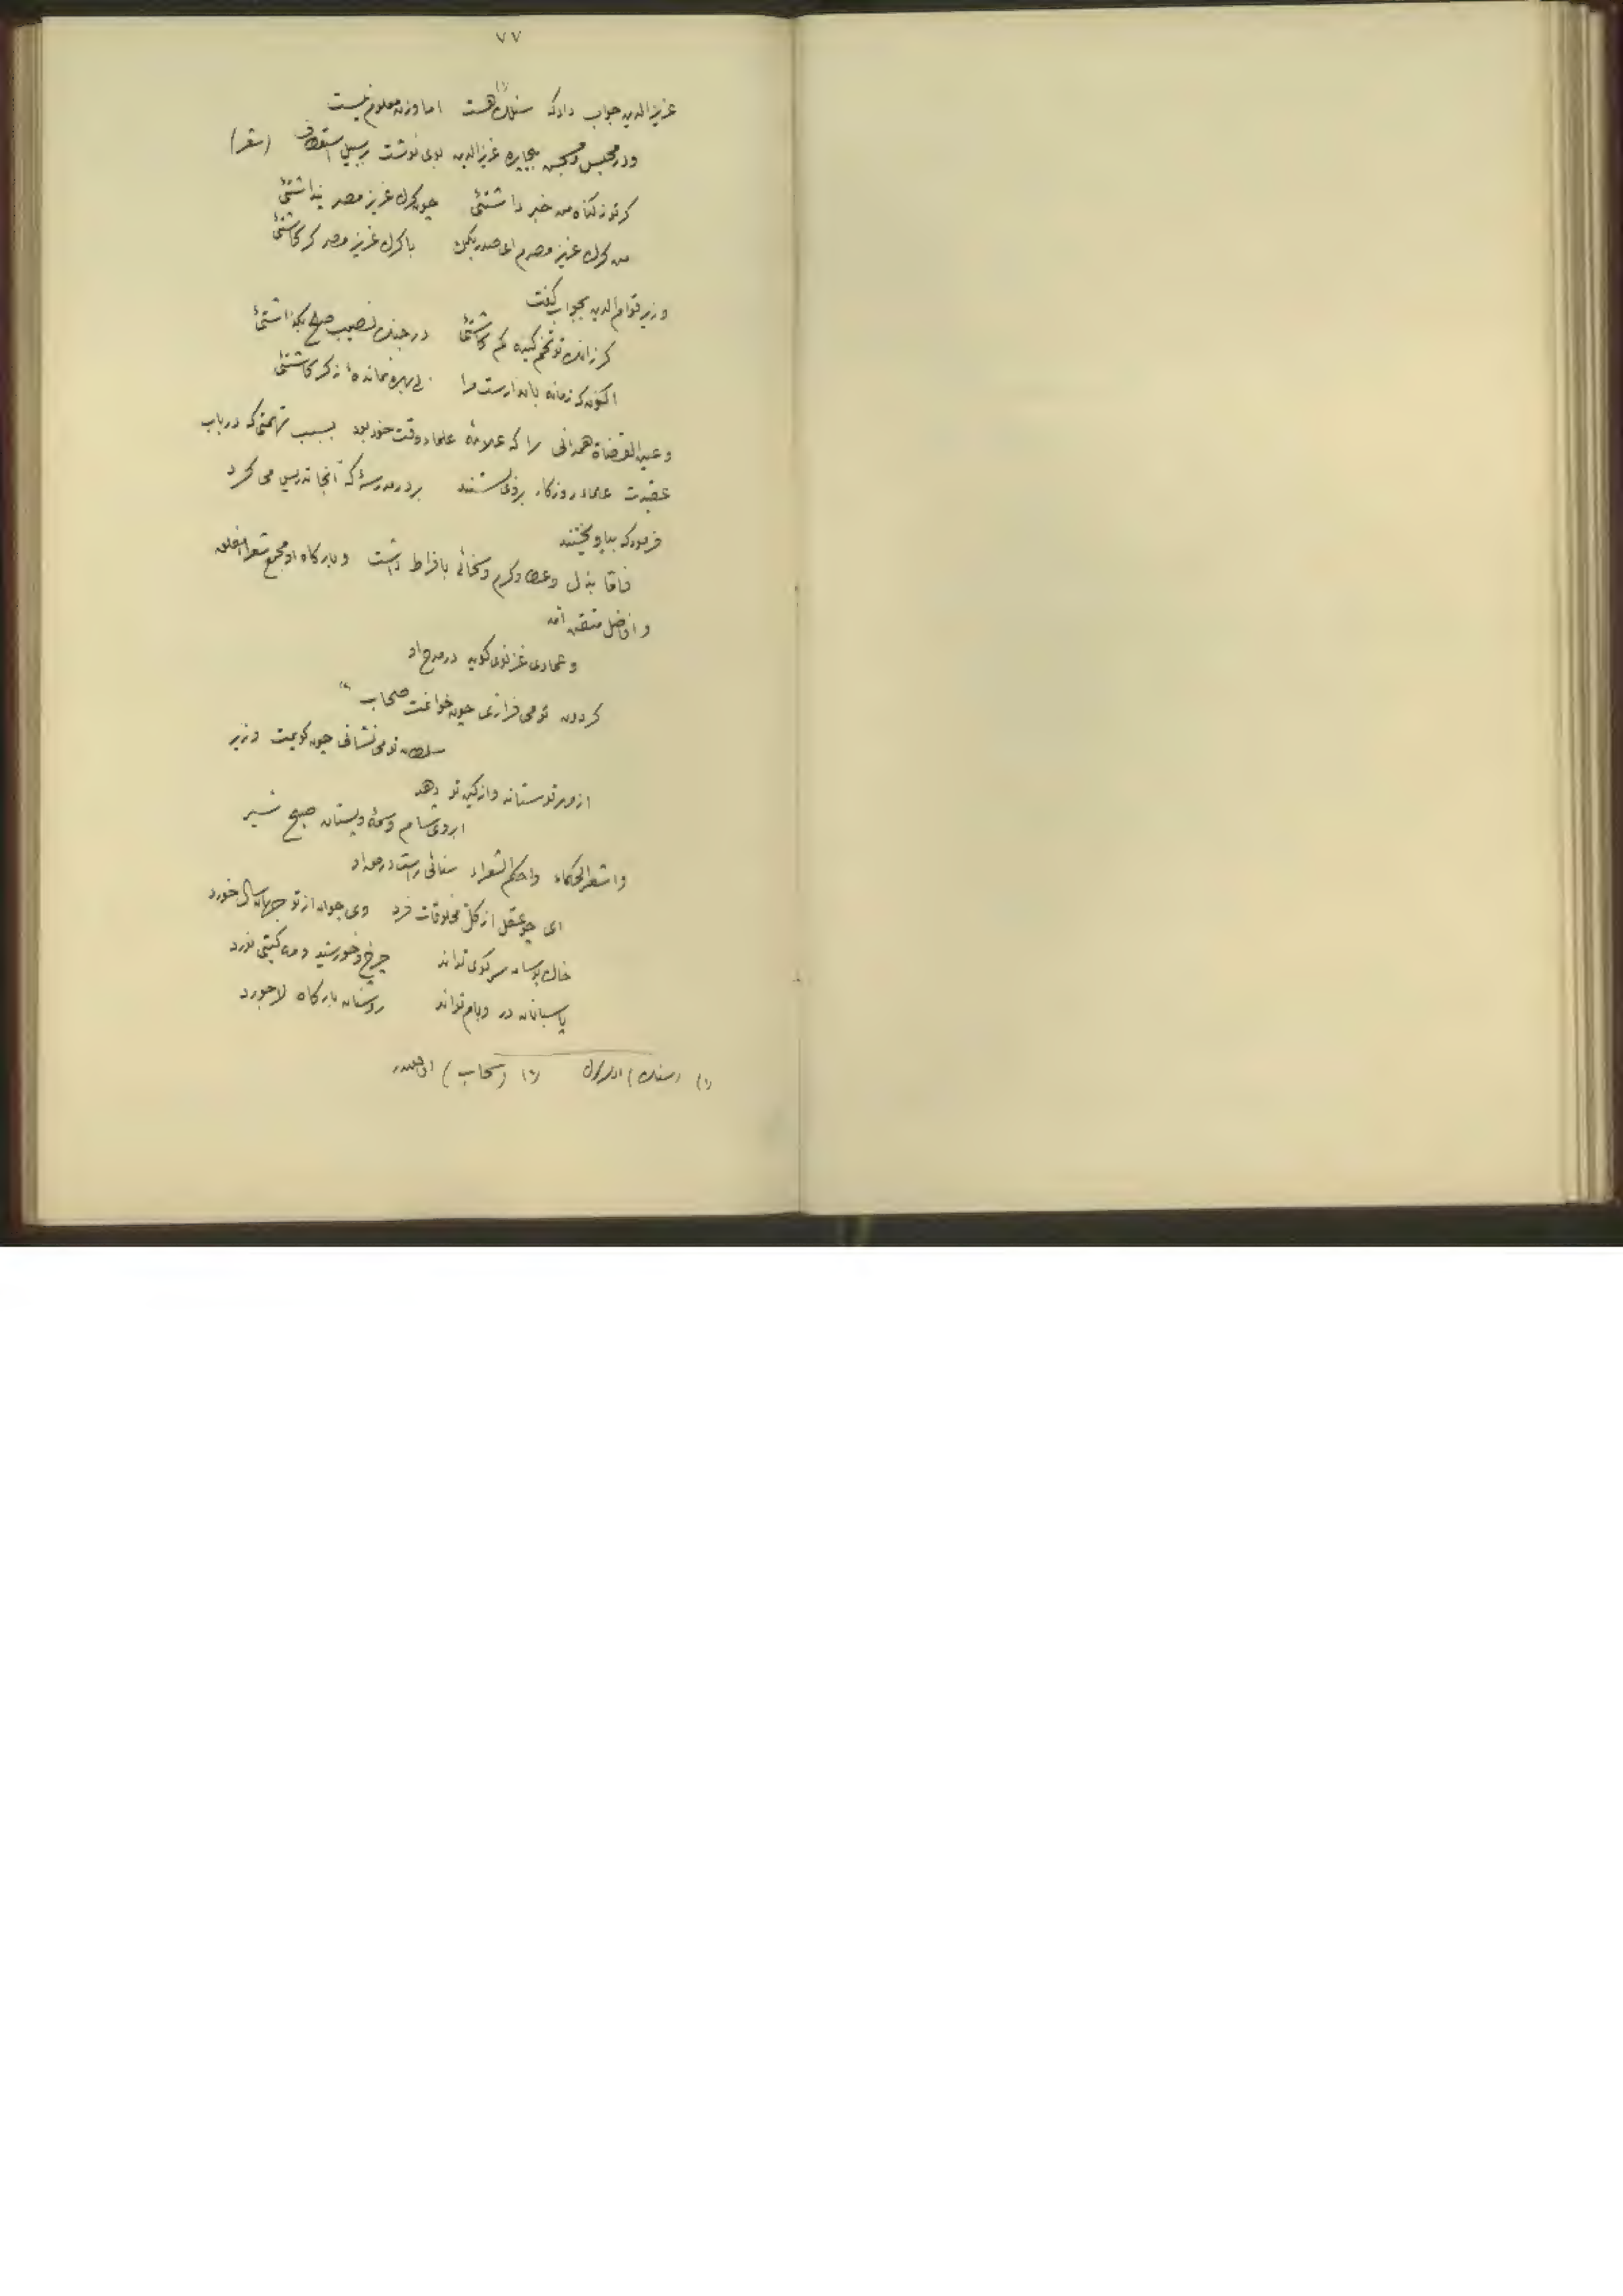 ٧٧
عزیزالدین جواب داد که سنک (١) هست اما وزن معلوم نیست
و در محبس عزیزالدین بوی نوشت بر سبیل استعطاف (شعر)
کر تو ز کناه من خبر داشتئی چون کرک عزیز مصر پنداشتئی
من کرک عزیز مصرم ای صدر بکن با کرک عزیز مصر کرک آشتئی
وزیر قوام الدین بجواب کفت
کر زانک تو تخم کینه کم کاشتئی در جنک نصیب صلح بکذاشتئی
اکنون که زمانه مرا بی بهره نمانده از کرک آشتئی
و عین القضاة همدانی را که علامهٔ علماء وقت خود بود بسبب تهمتی که در باب
عقیدت علماء روزکار بر وی بستند بر در مدرسهٔ که آنجا تدریس می کرد
فرمود که بیاویختند
فاما بذل و عطا و کرم و سخائی بافراط داشت و بارکاه او مجمع شعراء مفلق
و افاضل متقن آمد
و عمادی غزنوی کوید در مدح او
کردون تو می فرازی چون خوانمت صحاب (٢)
سلطان تو می نشانی چون کویمت وزیر
از مهر تو ستاند و از کین تو دهد
ابروی شام وسمه و پستان صبح شیر
و اشعر الحکماء و احکم الشعراء سنائی راست در حق او
ای چو عقل از کل مخلوقات فرد وی جوان از تو جهان سال خورد
خاک بوسان سر کوی تواند چرخ و خورشید و مه کیتی نورد
پاسبانان در و بام تواند روشنان بارکاه لاجورد
(١) (سنک) (٢) (سحاب)